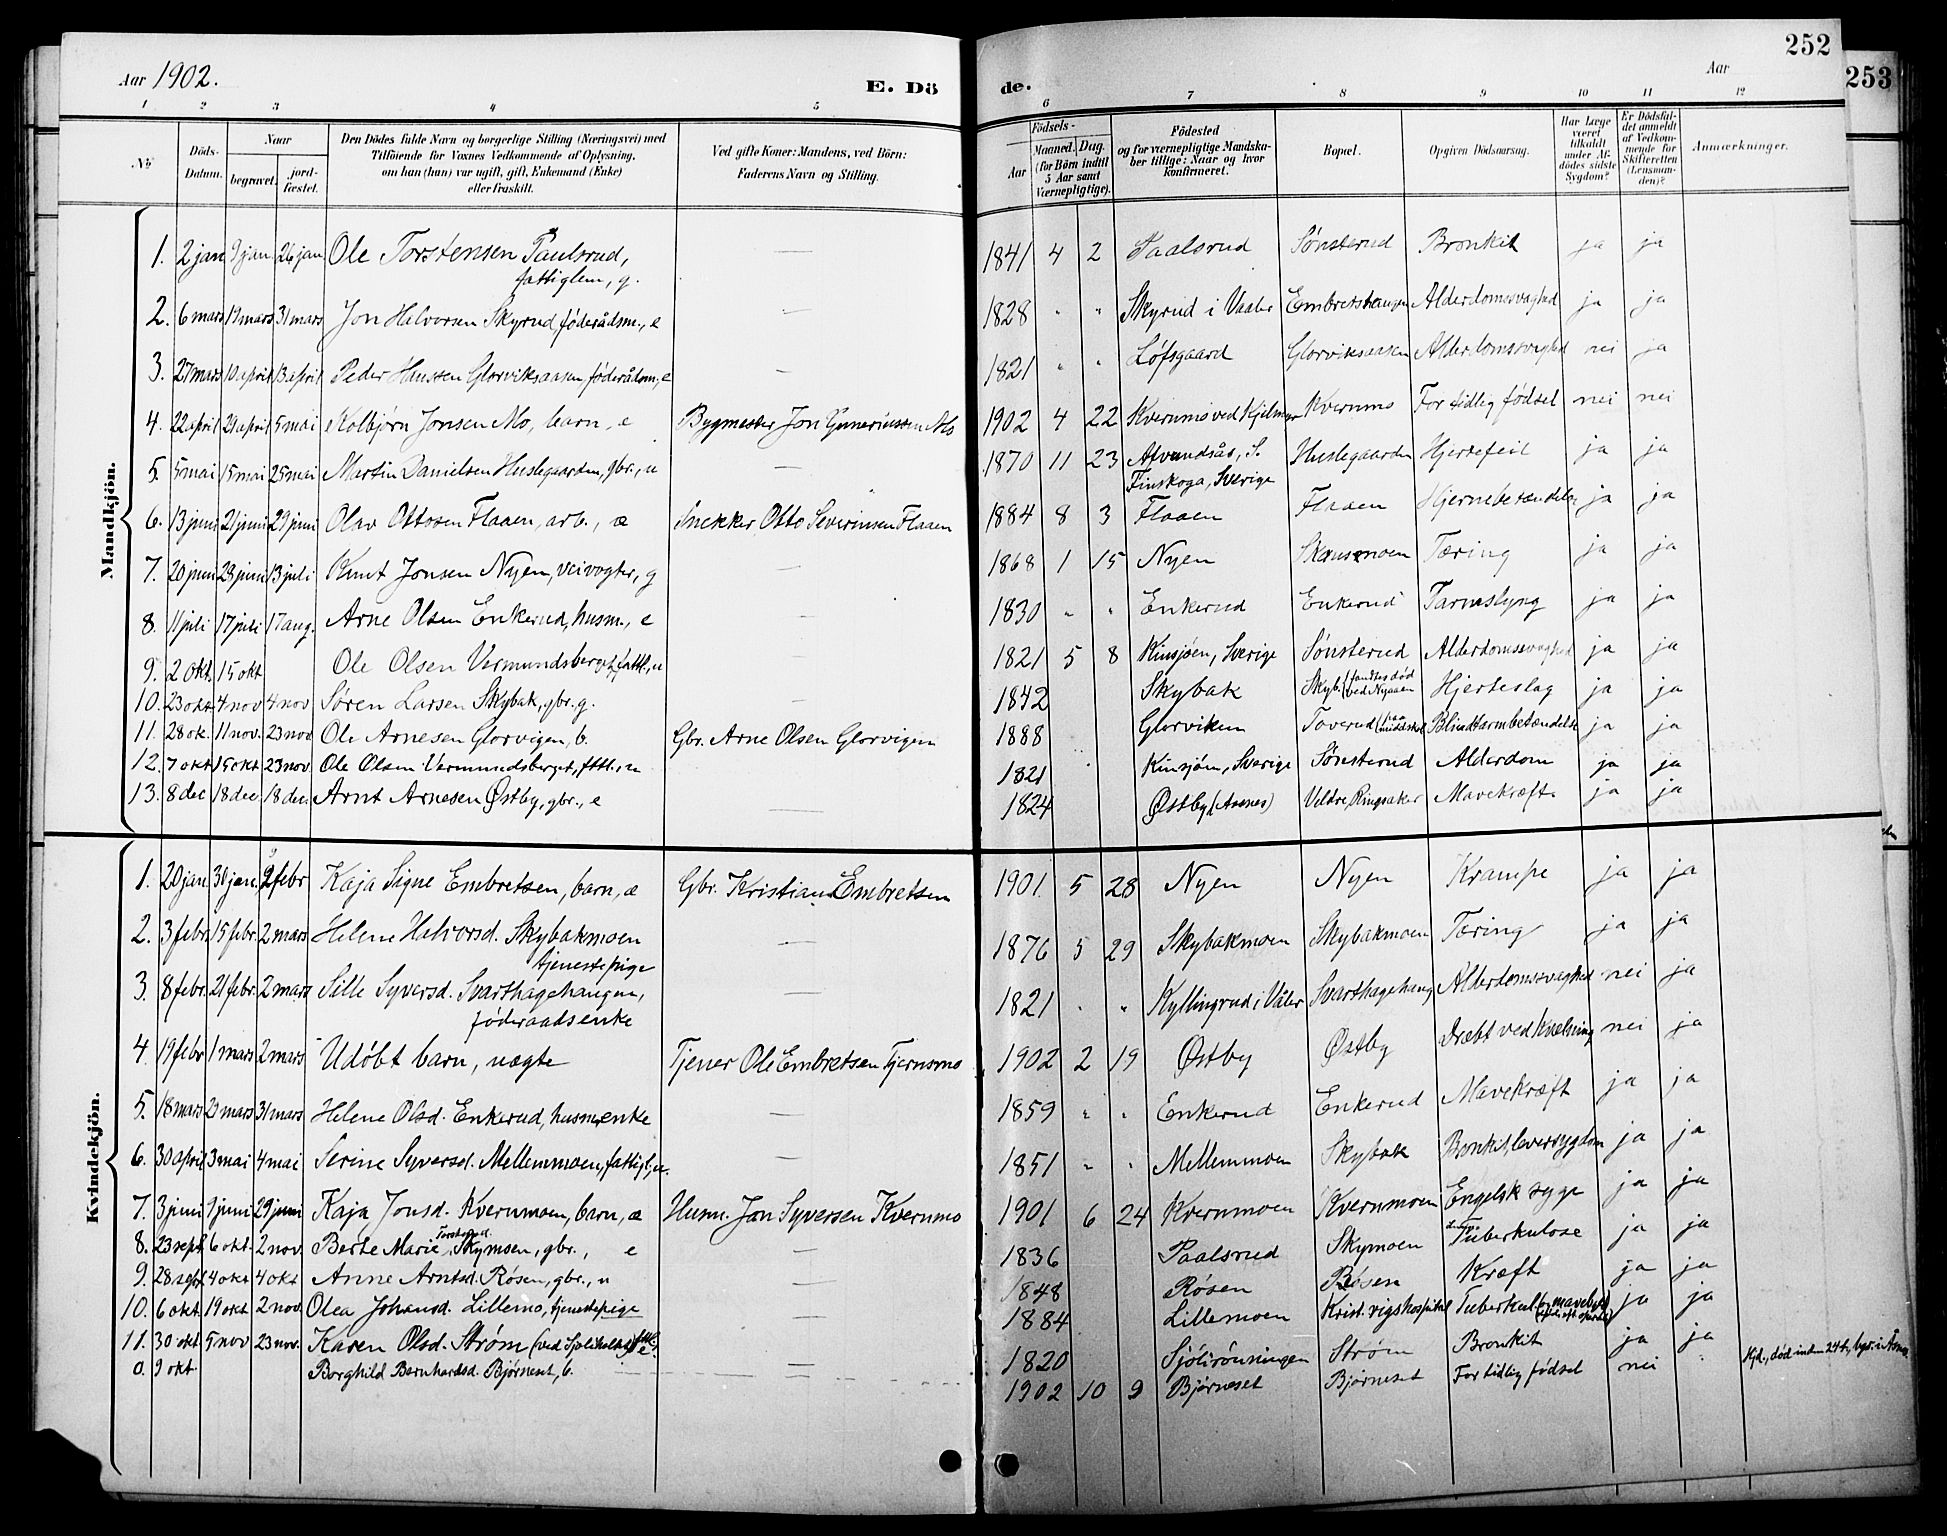 252
253
Aar 1902.
E. Dö
de.
Aar
1 2 3 4 5 6 7 8 9 10 11 12
No
Döds-Datum.
Naar
begravet.
jord-fæstet.
Den Dödes fulde Navn og borgerlige Stilling (Næringsvei) med
Tilföiende for Voxnes Vedkommende af Oplysning,
om han (hun) var ugift, gift, Enkemand (Enke)
eller fraskilt.
Ved gifte Koner: Mandens, ved Börn:
Faderens Navn og Stilling.
Födsels-
Aar
Maaned. Dag.
(for Börn indtil
5 Aar samt
Værnepligtige).
Födested
og for værnepligtige Mandska-
ber tillige: Naar og hvor
konfirmeret.
Bopæl.
Opgiven Dödsaarsag.
Har Læge
været
tilkaldt
under Af-
dödes sidste
Sygdom?
Er Dödsfal-
det anmeldt
af Vedkom-
mende for
Skifteretten
(Lensman-
den)?
Anmærkninger.
Mandkjön.
1. 2 jan 9 jan 26 jan Ole Torstensen Paulsrud, fattiglem, g. — 1841 4 2 Paalsrud Sønsterud Bronkit ja ja
2. 6 mars 19 mars 31 mars Jon Halvorsen Skyrud, föderådsm., e — 1828 " " Skyrud i Vaaler Embretshaugen Alderdomssvaghed ja ja
3. 27 mars 10 april 13 april Peder Hanssen Glorviksaasen, föderådsm., e — 1821 " " Löfsgaard Glorviksaasen Alderdomssvaghed nei ja
4. 22 april 29 april 5 mai Kolbjørn Jonsen Mo, barn, e Bygmester Jon Guneriussen Mo 1902 4 22 Kvernmo ved Kjelmyr Kvernmo For tidlig födsel nei nei
5. 5 mai 15 mai 25 mai Martin Danielsen Huslegaarden, gbr., u — 1870 11 23 Afvundsås, S. Finskoga, Sverige Huslegaarden Hjertefeil ja ja
6. 13 juni 21 juni 29 juni Olav Ottosen Flaaen, arb., æ Snekker Otto Severinsen Flaaen 1884 8 3 Flaaen Flaaen Hjernebetændelse ja ja
7. 20 juni 28 juni 13 juli Knut Jonsen Nyen, veivogter, g — 1868 1 15 Nyen Skansemoen Tæring ja ja
8. 11 juli 17 juli 17 aug. Arne Olsen Enkerud, husm., e — 1830 " " Enkerud Enkerud Tarmslyng ja ja
9. 2 okt. 15 okt Ole Olsen Vermundsberget, fattl., u — 1821 5 8 Kinsjøen, Sverige Sønsterud Alderdomssvaghed ja ja
10. 23 okt. 4 nov 4 nov Søren Larsen Skybak, gbr. g. — 1842 Skybak Skyb. (fandtes död ved Nyaaen Hjerteslag ja ja
11. 28 ok. 11 nov. 23 nov Ole Arnesen Glorvigen, b. Gbr. Arne Olsen Glorvigen 1888 Glorviken Toverud Blindtarmbetændelse ja ja
12. 7 okt 15 okt 23 nov. Ole Olsen Vermundsberget, fttl., u 1821 Kinsjøen, Sverige Sønsterud Alderdom ja ja
13. 8 dec 18 dec. 18 dec. Arnt Arnesen Østby, gbr., e — 1824 Østby (Aasnes) Veldre, Ringsaker Mavekræft ja ja
Kvindekjön.
1. 20 jan. 30 jan. 2 febr Kaja Signe Embretsen, barn, æ Gbr. Kristian Embretsen 1901. 5 28 Nyen Nyen Krampe ja ja
2. 3 febr. 15 febr. 2 mars Helene Halvorsd. Skybakmoen tjenestepige — 1876 5 29 Skybakmoen Skybakmoen Tæring ja ja
3. 8 febr. 21 febr. 2 mars Sille Syversd. Svarthagehaugen, föderaadsenke — 1821 " " Kyllingrud i Våler Svarthagehaug Alderdomssvaghed nei ja
4. 19 febr 1 mars 2 mars Udöbt barn, uægte Tjener Ole Embretsen Tjernsmo 1902 2 19 Østby Østby Dræbt ved Kvælning nei ja
5. 18 mars 29 mars 31 mars Helene Olsd. Enkerud, husm.enke — 1859 " " Enkerud Enkerud Mavekræft ja ja
6. 30 april 3 mai 4 mai Serine Syversd. Mellemmoen, fattigl., u. — 1851 " " Mellemmoen Skybak Bronkit, leversygdom ja ja
7. 3 juni 9 juni 29 juni Kaja Jonsd. Kvernmoen, barn, æ Husm. Jon Syversen Kvernmo 1901 6 24 Kvernmoen Kvernmoen Engelsk syge ja ja
8. 23 sept. 6 okt. 2 nov. Berte Marie Torstensd. Skymoen, gbr., e — 1836 Paalsrud Skymoen Tuberkulose ja ja
9. 28 sept 4 okt 4 okt Anne Arntsd. Rösen, gbr., u — 1848 Rösen Rösen Kræft ja ja
10. 6 okt. 19 okt 2 nov. Olea Johansd. Lillemo, tjenestepige — 1884 Lillemoen Krist. rigshospital Tuberkul. ja ja
11. 30 okt 5 nov 23 nov. Karen Olsd. Strøm — 1820 Sjöliröuningen Strøm Bronkit ja ja
0. 9 okt. Borghild Bernhardsd. Bjørneset, b. — 1902 10 9 Bjørneset Bjørneset For tidlig födsel nei " Hjd., död inden 24 t.,